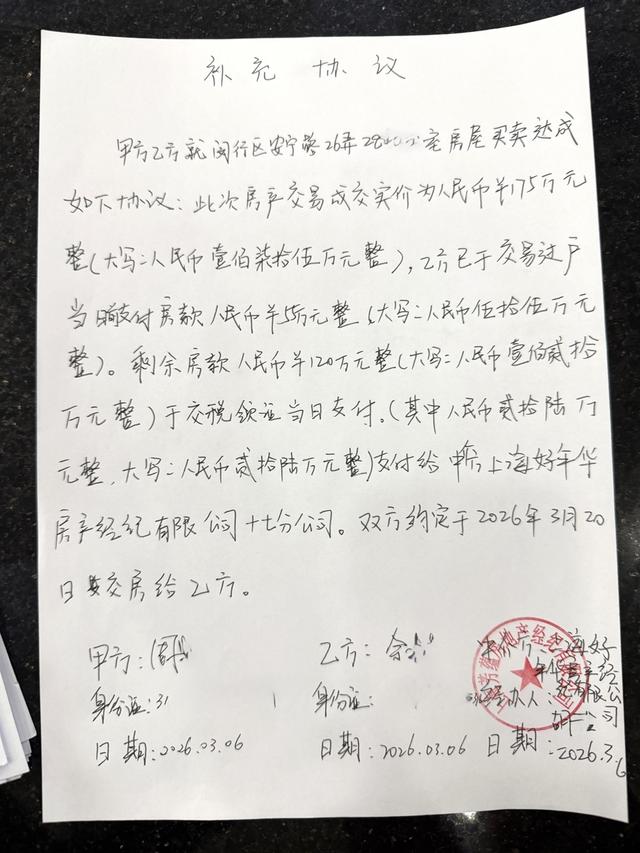 补充协议
甲方乙方就闵行区安宁路26弄28室房屋买卖达成
如下协议:此次房产交易成交实价为人民币¥175万元
整(大写:人民币壹佰柒拾伍万元整),乙方已于交易过户
当日前支付房款人民币¥55万元整(大写:人民币伍拾伍万元
整)。剩余房款人民币¥120万元整(大写:人民币壹佰贰拾
万元整)于交税领证当日支付。(其中人民币贰拾陆万
元整,大写:人民币贰拾陆万元整)支付给中介上海好年华
房产经纪有限公司十七分公司。双方约定于2026年3月20
日交房给乙方。
甲方:周
乙方:余
中介方:上海好
年华房产经
纪有限公
司
经办人:
身份证:31
身份证:
日期:2026.03.06
日期:2026.03.06
日期:2026.3.6
房地产经纪有限